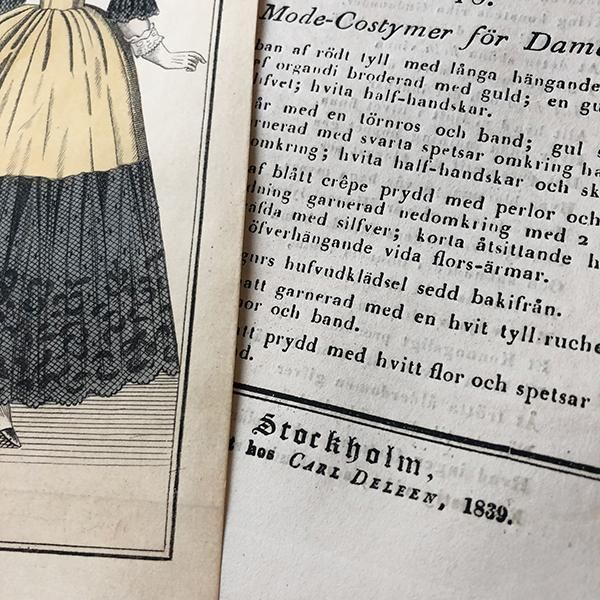 Mode-Costymer för Dame
ban af rödt tyll med långa hängande
af organdi broderad med guld; en gu
hvita half-handskar.
år med en törnros och band; gul
rnerad med svarta spetsar omkring
omkring; hvita half-handskar och sk
af blått crêpe prydd med perlor och
dning garnerad nedomkring med 2
med silfver; korta åtsittande h
öfverhängande vida flors-ärmar.
gurs hufvudklädsel sedd bakifrån.
att garnerad med en hvit tyll-ruche
or och band.
tt prydd med hvitt flor och spetsar
d.
Stockholm,
t hos CARL DELEEN, 1839.